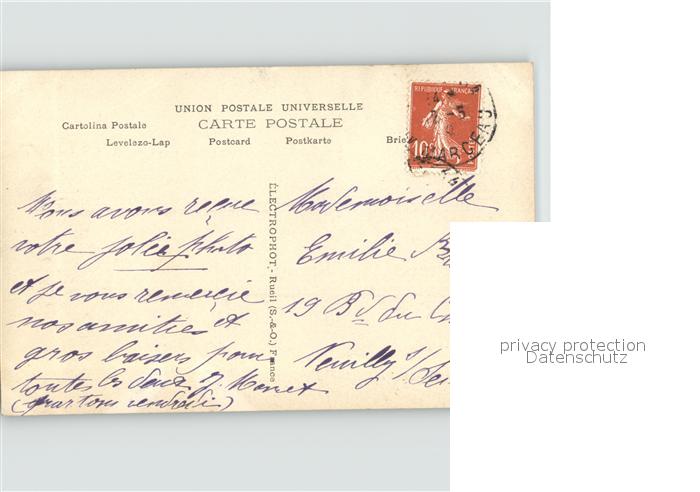 UNION POSTALE UNIVERSELLE
CARTE POSTALE
Cartolina Postale
Levelezo-Lap Postcard Postkarte Brie
REPUBLIQUE FRANÇAISE
10
ÉLECTROPHOT. - Rueil (S.-&-O.) France
Nous avons reçue
votre jolie photo
et je vous remercie
nos amities et
gros baisers pour
toutes les deux J. Menet
vendredi)
Mademoiselle
Emilie
19 Bd du
Neuilly s/ Sei
privacy protection
Datenschutz